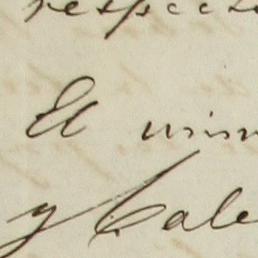 respecto
El min
y Cale